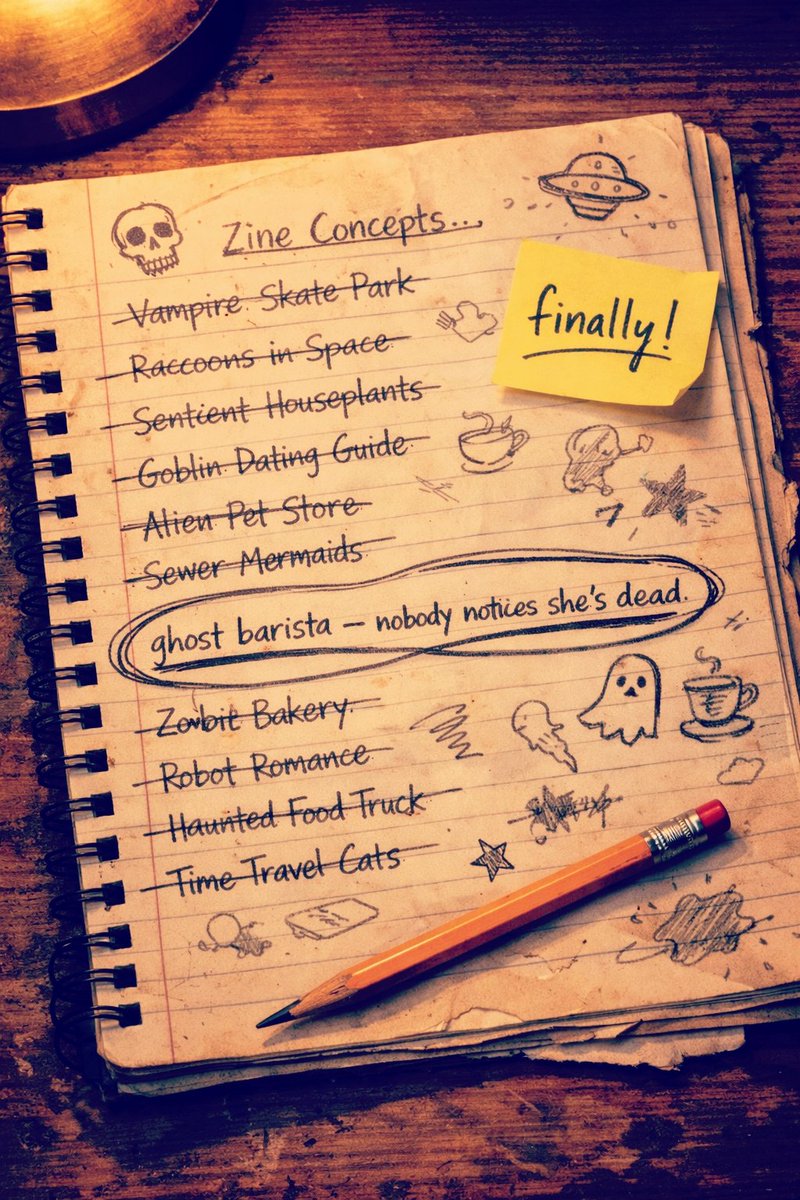 Zine Concepts...
finally!
Vampire Skate Park
Raccoons in Space
Sentient Houseplants
Goblin Dating Guide
Alien Pet Store
Sewer Mermaids
ghost barista — nobody notices she's dead.
Bakery
Robot Romance
Haunted Food Truck
Time Travel Cats